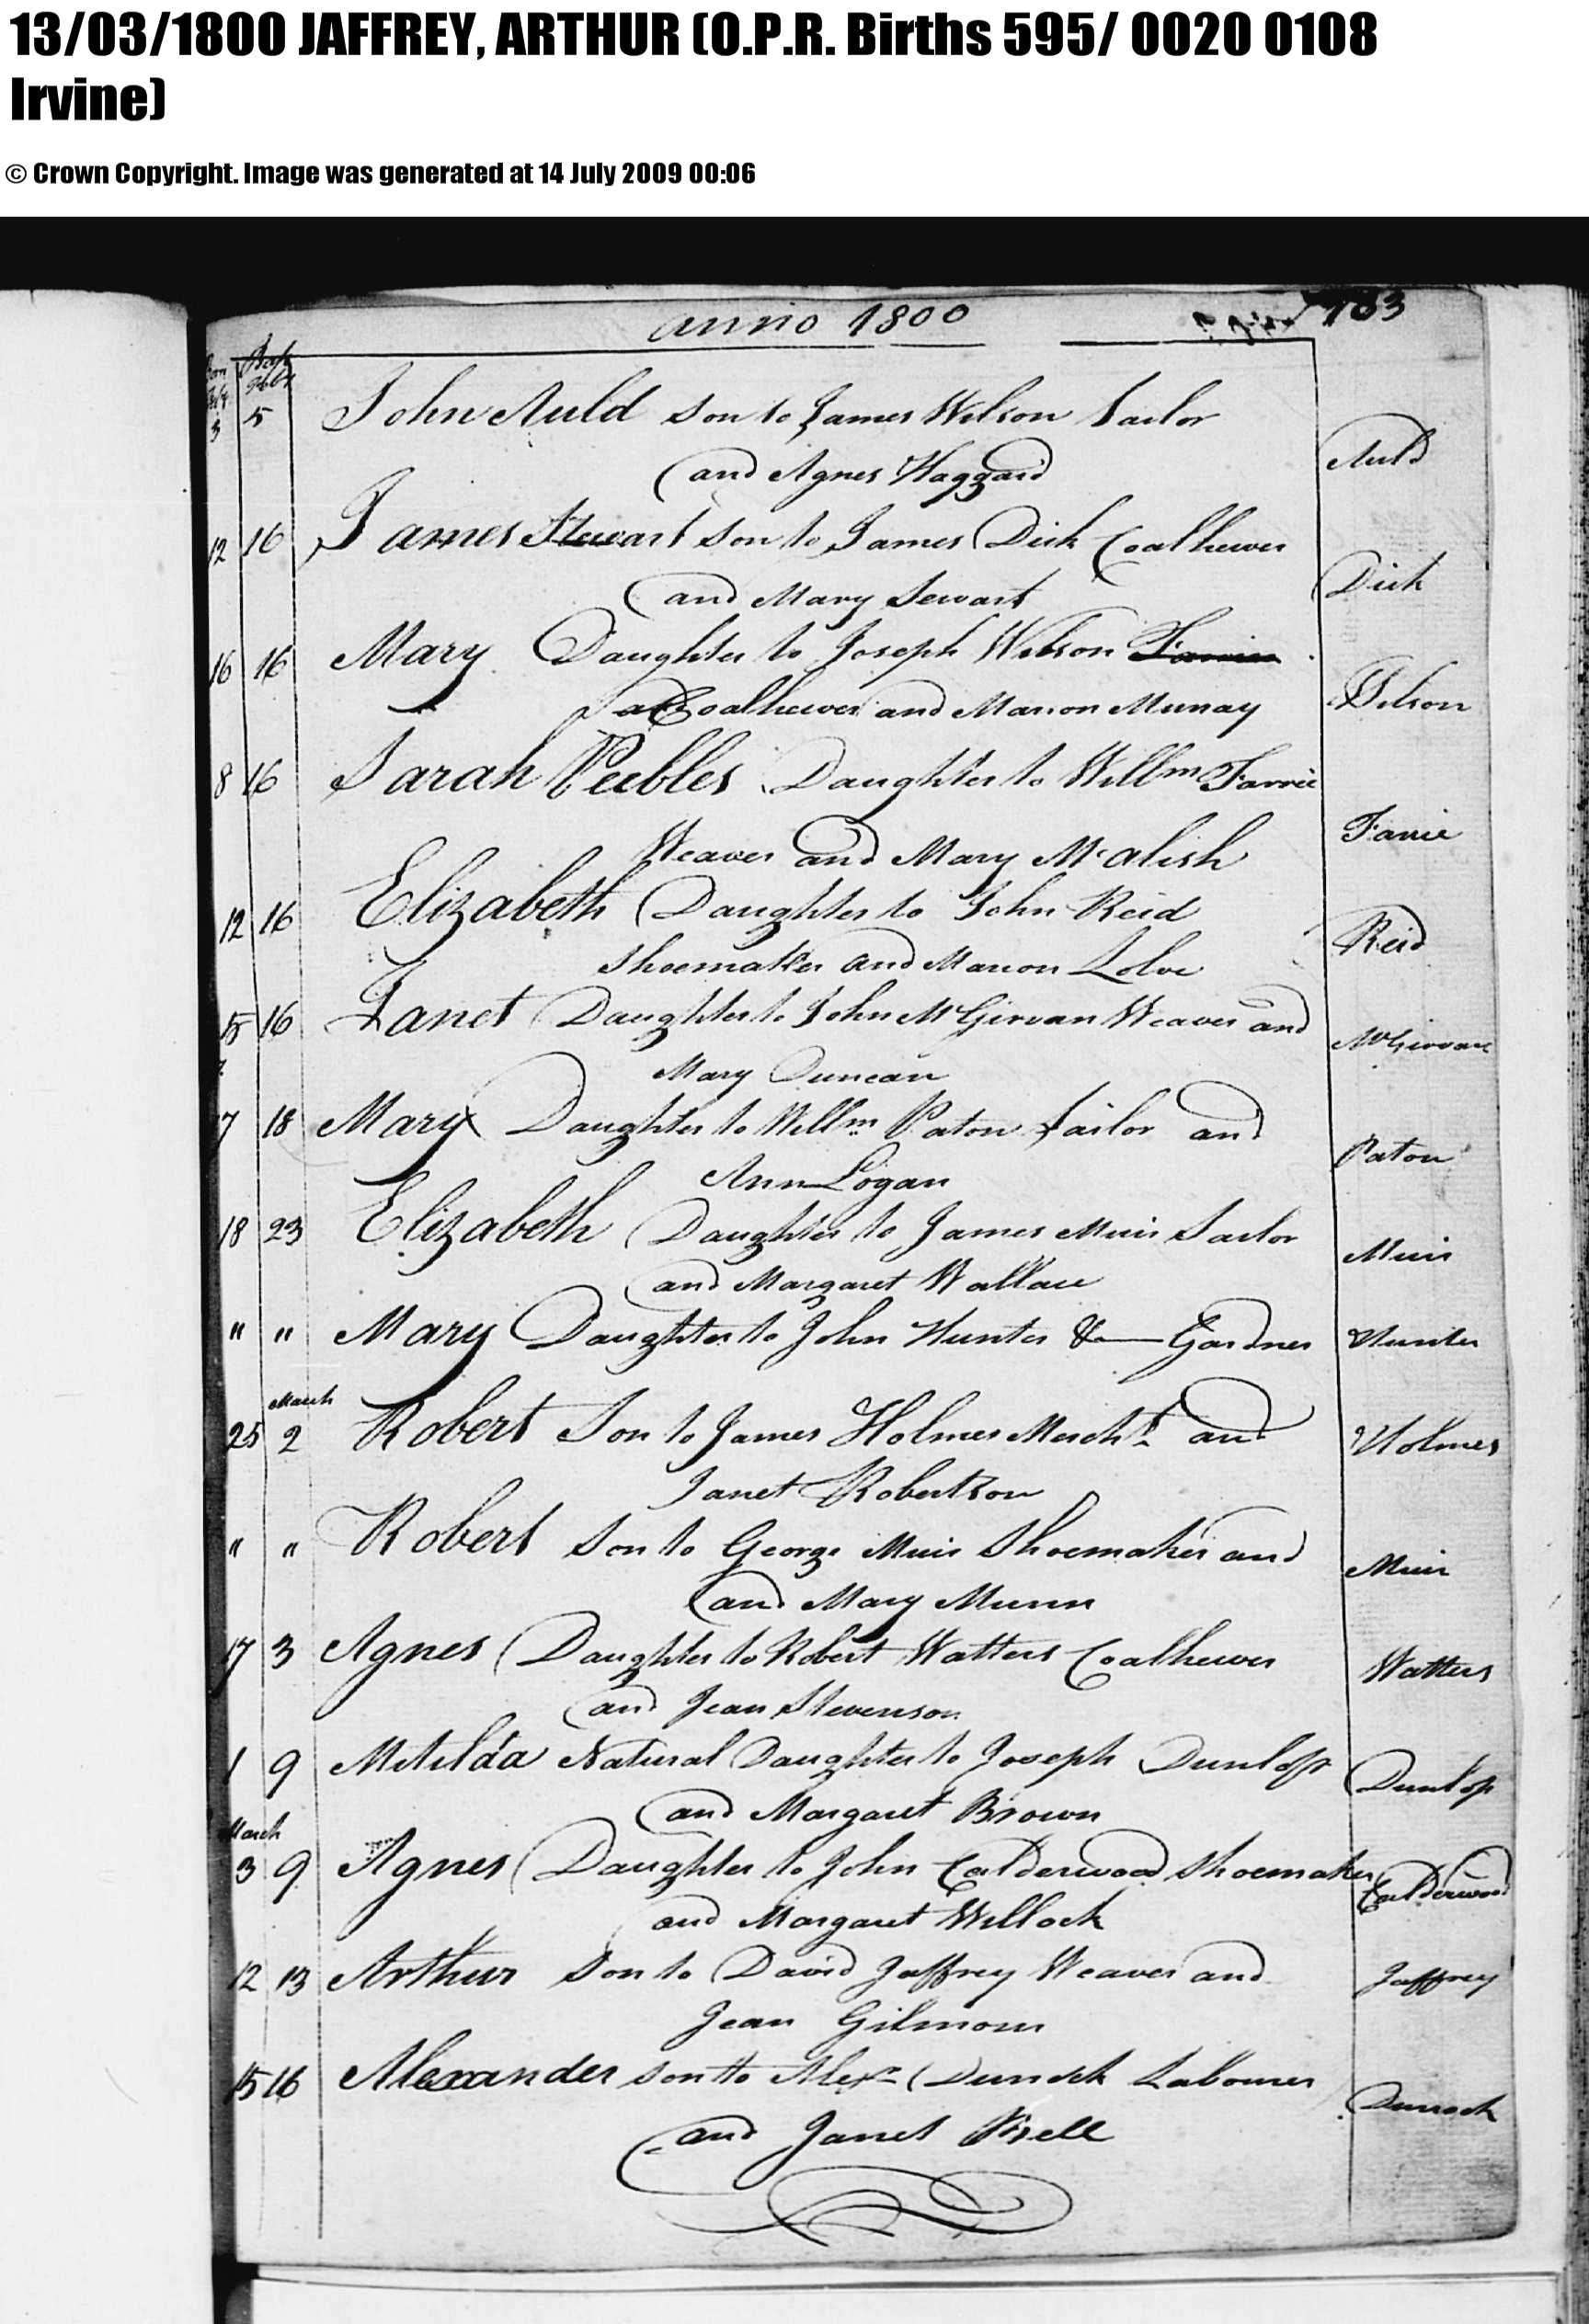 13/03/1800 JAFFREY, ARTHUR (O.P.R. Births 595/ 0020 0108
Irvine)
© Crown Copyright. Image was generated at 14 July 2009 00:06
anno 1800 183
Born Bap
Feby Feby
3 5 John Auld Son to James Wilson Sailor
and Agnes Haggard Auld
12 16 James Stewart son to James Dick Coalhewer
and Mary Sewart Dick
16 16 Mary Daughter to Joseph Wilson Farrie
Coalhewer and Marion Murray Wilson
8 16 Sarah Peebles Daughter to Willm Farrie
Weaver and Mary McAlish Farrie
12 16 Elizabeth Daughter to John Reid
Shoemaker and Marion Reid
15 16 Janet Daughter to John McGirvan Weaver and
Mary Duncan McGirvan
17 18 Mary Daughter to Willm Paton Sailor and
Ann Logan Paton
18 23 Elizabeth Daughter to James Muir Sailor
and Margaret Wallace Muir
" " Mary Daughter to John Hunter & — Gardner Hunter
March
25 2 Robert Son to James Holmes Mercht and
Janet Robertson Holmes
" " Robert Son to George Muir Shoemaker and
and Mary Munn Muir
17 3 Agnes Daughter to Robert Watters Coalhewer
and Jean Stevenson Watters
1 9 Matilda Natural Daughter to Joseph Dunlop
and Margaret Brown Dunlop
March
3 9 Agnes Daughter to John Calderwood Shoemaker
and Margaret Willock Calderwood
12 13 Arthur Son to David Jaffrey Weaver and
Jean Gilmour Jaffrey
15 16 Alexander son to Alexr Labourer
and Janet Bell